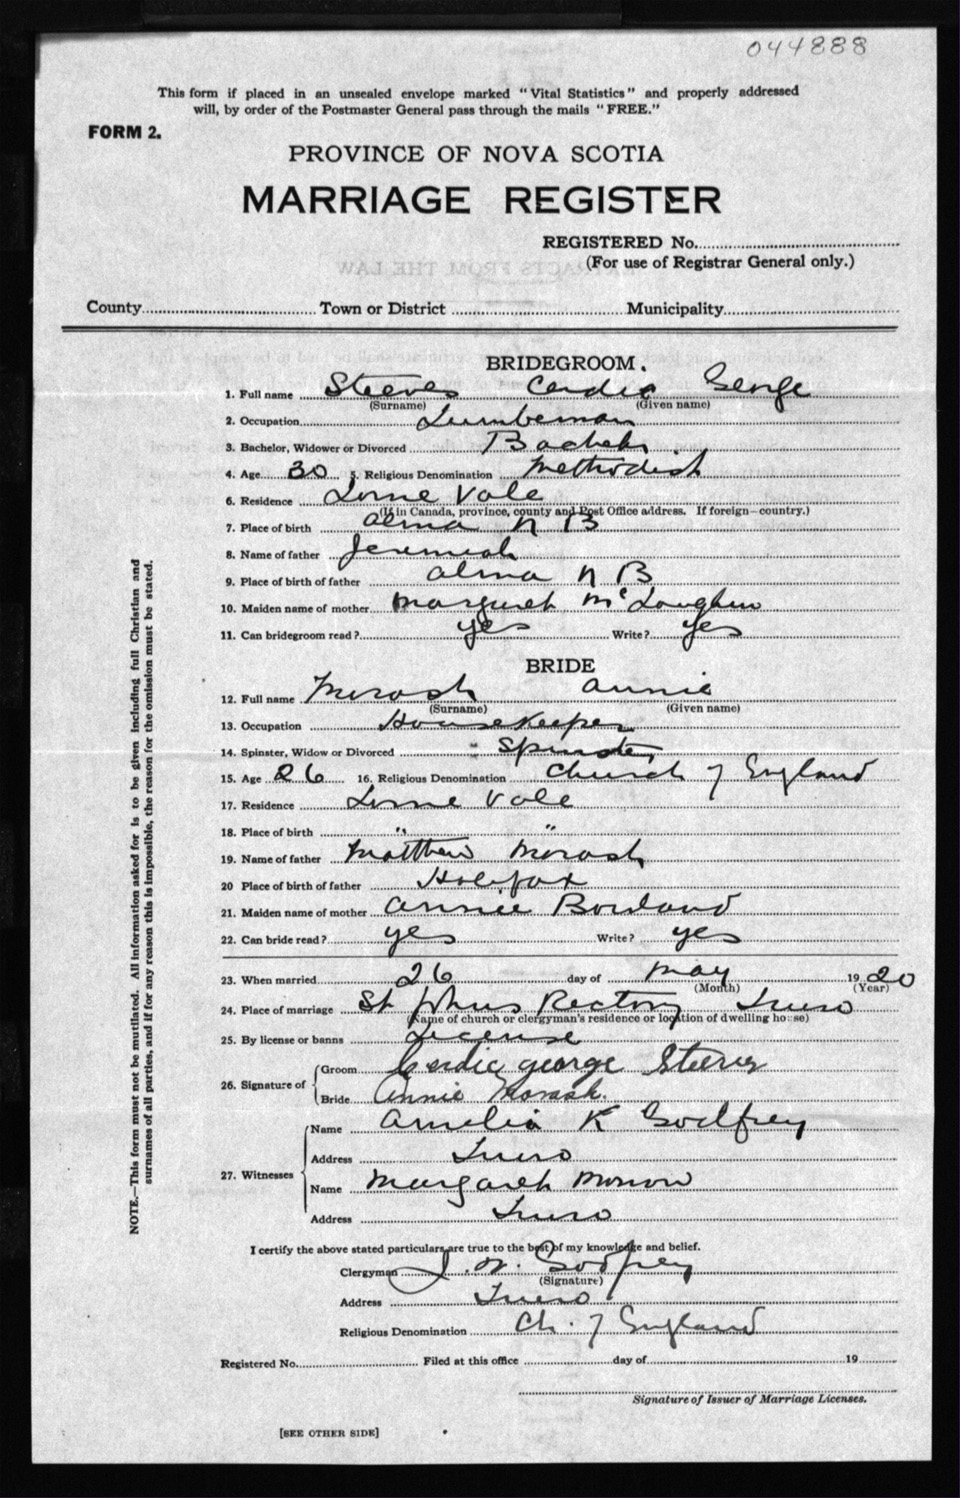 044888
This form if placed in an unsealed envelope marked "Vital Statistics" and properly addressed
will, by order of the Postmaster General pass through the mails "FREE."
FORM 2.
PROVINCE OF NOVA SCOTIA
MARRIAGE REGISTER
REGISTERED No.
(For use of Registrar General only.)
County Town or District Municipality
BRIDEGROOM.
1. Full name Steeves Cerdic George
(Surname) (Given name)
2. Occupation Lumberman
3. Bachelor, Widower or Divorced Bachelor
4. Age 30 5. Religious Denomination Methodist
6. Residence Lorne Vale
(If in Canada, province, county and Post Office address. If foreign—country.)
7. Place of birth Alma N B
8. Name of father Jeremiah
9. Place of birth of father Alma N B
10. Maiden name of mother Margaret McLoughlin
11. Can bridegroom read? yes Write? yes
BRIDE
12. Full name Morash Annie
(Surname) (Given name)
13. Occupation Housekeeper
14. Spinster, Widow or Divorced Spinster
15. Age 26 16. Religious Denomination Church of England
17. Residence Lorne Vale
18. Place of birth " "
19. Name of father Matthew Morash
20 Place of birth of father Halifax
21. Maiden name of mother Annie Borland
22. Can bride read? yes Write? yes
23. When married 26 day of May 1920
(Month) (Year)
24. Place of marriage St Johns Rectory Truro
(Name of church or clergyman's residence or location of dwelling house)
25. By license or banns License
26. Signature of Groom Cerdic George Steeves
Bride Annie Morash.
27. Witnesses Name Amelia K Godfrey
Address Truro
Name Margaret Morrow
Address Truro
I certify the above stated particulars are true to the best of my knowledge and belief.
Clergyman J. W. Godfrey
(Signature)
Address Truro
Religious Denomination Ch. of England
Registered No. Filed at this office day of 19
Signature of Issuer of Marriage Licenses.
[SEE OTHER SIDE]
NOTE.—This form must not be mutilated. All information asked for is to be given including full Christian and
surnames of all parties, and if for any reason this is impossible, the reason for the omission must be stated.